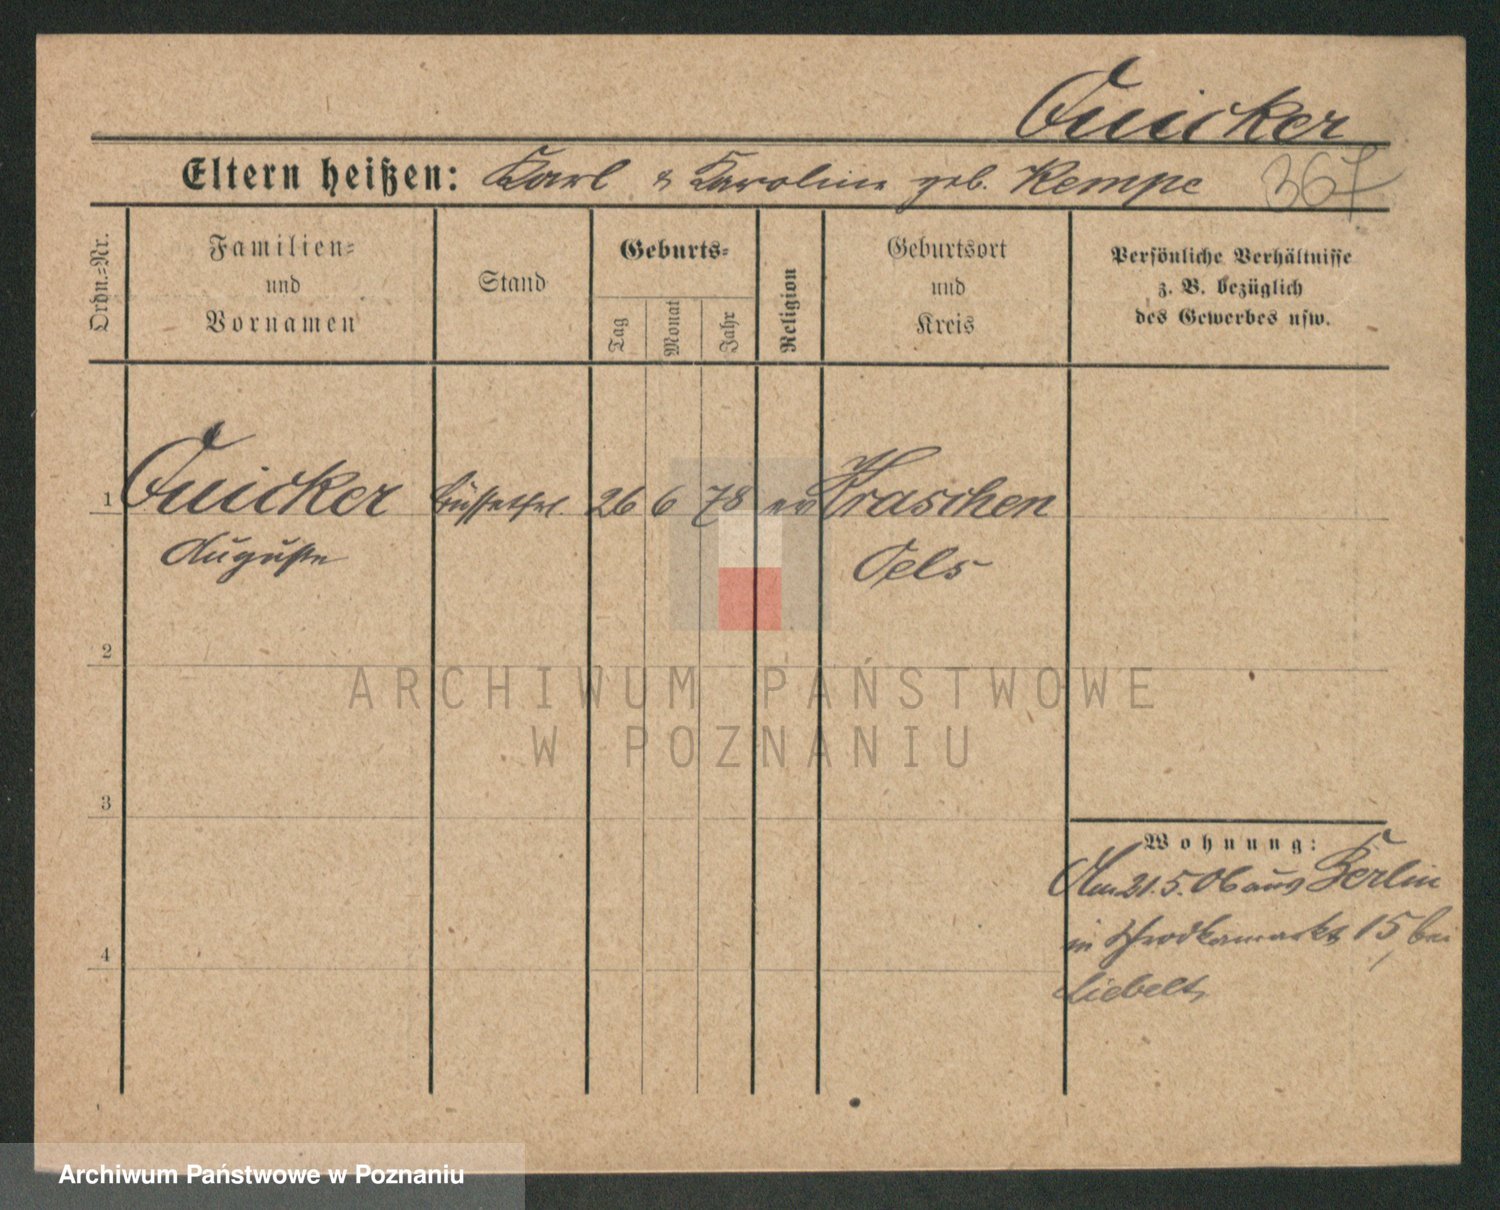 Quicker
Eltern heißen: Karl & Karoline geb. Kempe 367
Ordn.=Nr.
Familien=
und
Vornamen
Stand
Geburts=
Tag
Monat
Jahr
Religion
Geburtsort
und
Kreis
Persönliche Verhältnisse
z. B. bezüglich
des Gewerbes usw.
1 Quicker Büffetfrl. 26 6 78 ev Kraschen
Auguste Oels
2
3
4
Wohnung:
Am 21.5.06 aus Berlin
in Schrodkamarkt 15, bei
Liebelt
ARCHIWUM PAŃSTWOWE
W POZNANIU
Archiwum Państwowe w Poznaniu